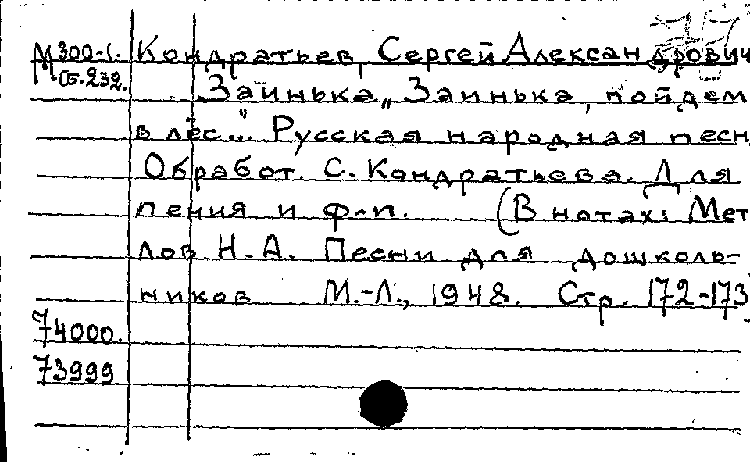 М300-1. Кондратьев, Сергей Александрович
Сб.232. Заинька „Заинька, пойдем
в лес..." Русская народная песн
Обработ. С. Кондратьева. Для
пения и ф-п. (В нотах: Мет
лов Н.А. Песни для дошколь-
ников М.-Л., 1948. Стр. 172-173
74000.
73999